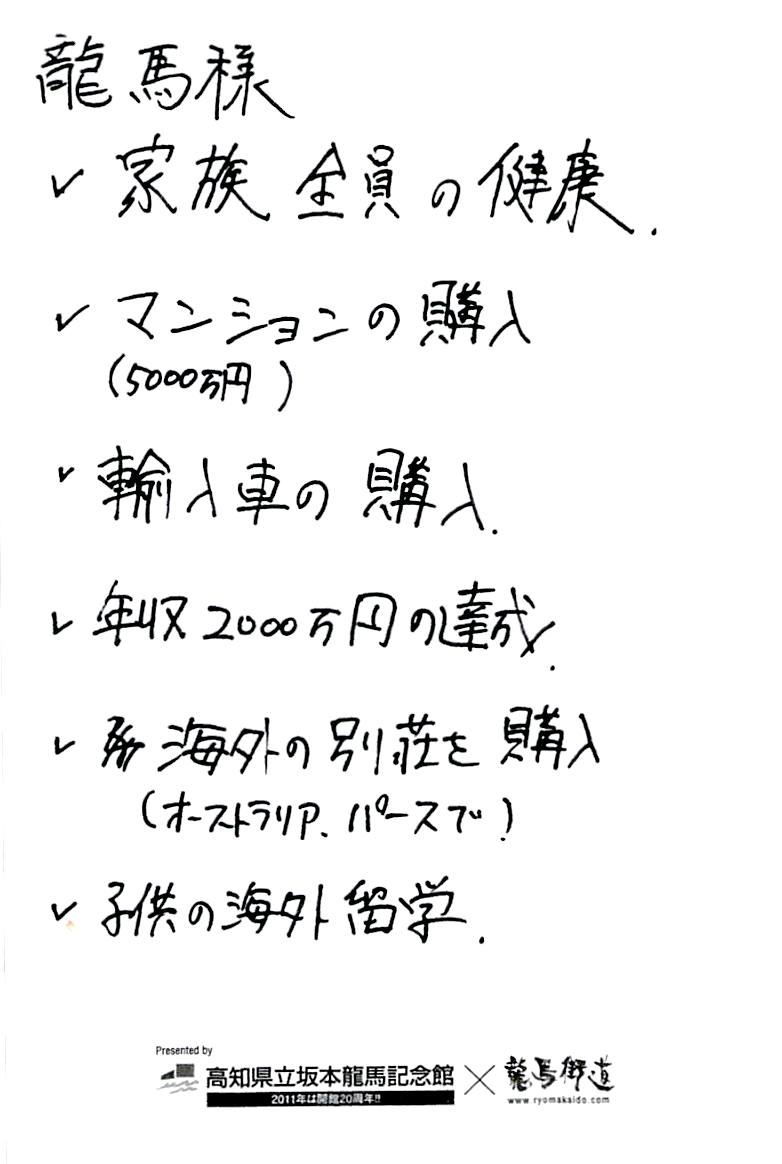 龍馬様
✓ 家族全員の健康.
✓ マンションの購入
(5000万円)
✓ 輸入車の購入.
✓ 年収2000万円の達成.
✓ 海外の別荘を購入
(オーストラリア、パースで)
✓ 子供の海外留学.
Presented by
高知県立坂本龍馬記念館 × 龍馬街道
2011年は開館20周年!!
www.ryomakaido.com